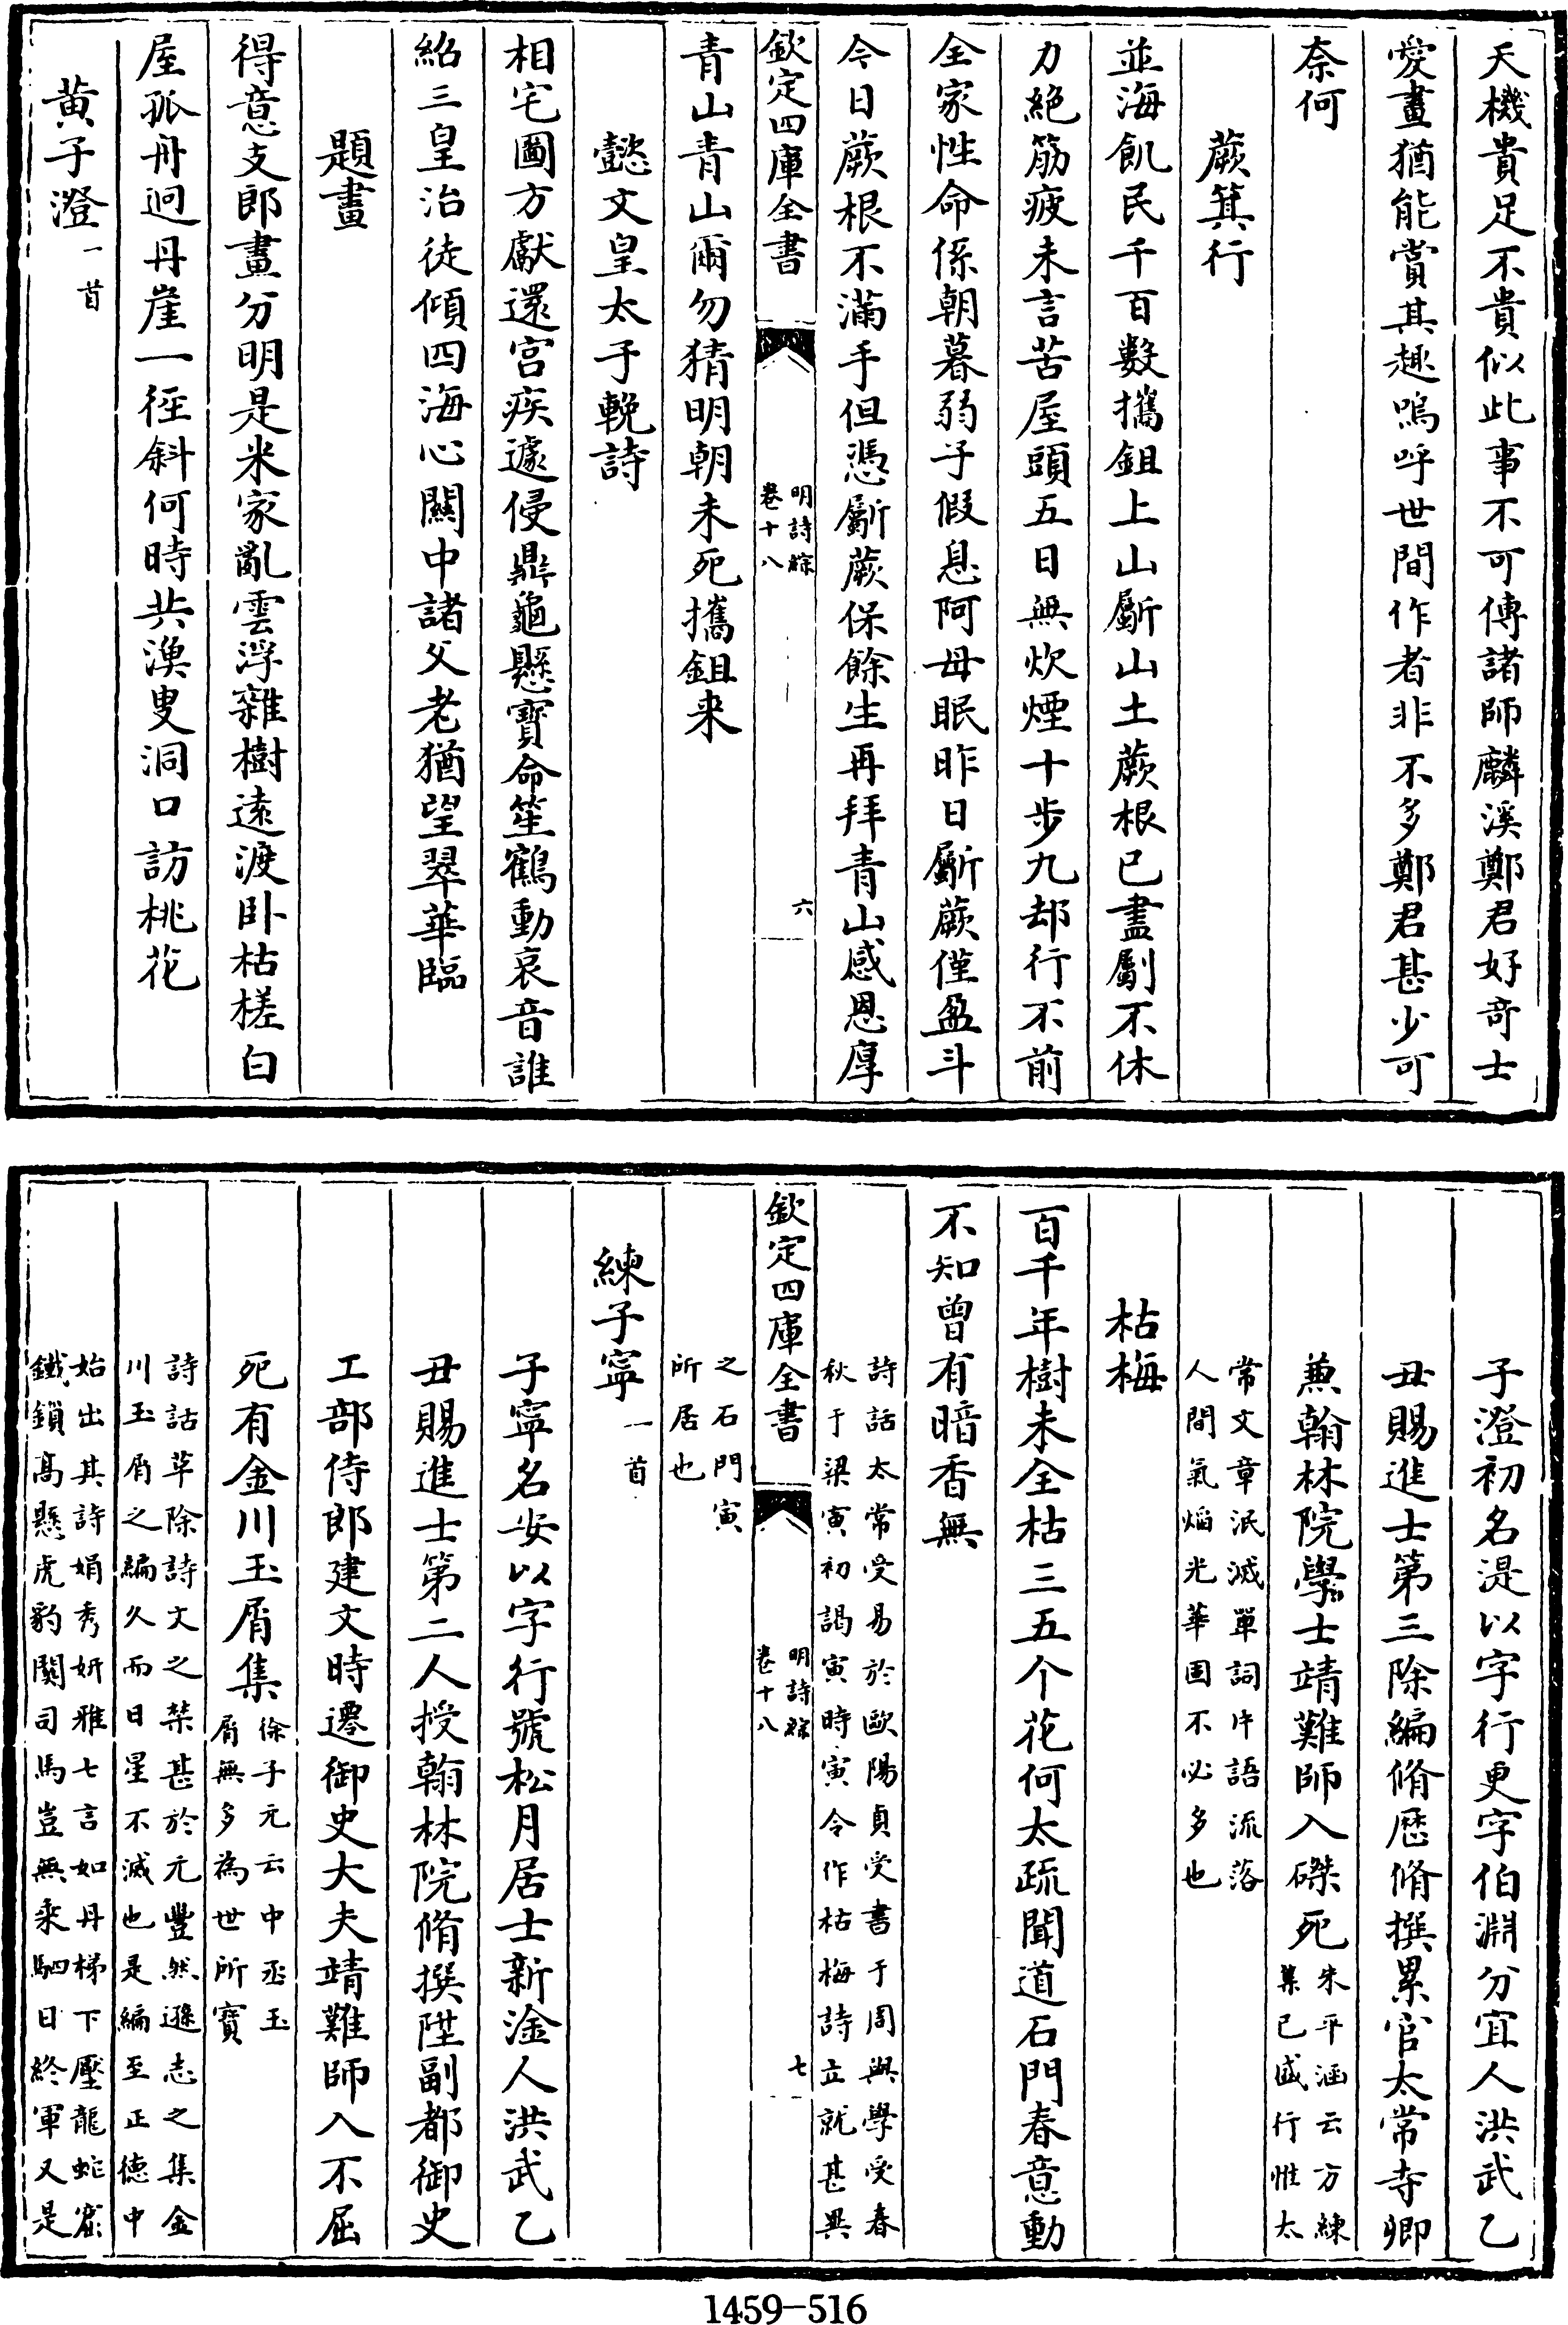 天機貴足不貴似此事不可傳諸師麟溪鄭君好奇士
愛畫猶能賞其趣嗚呼世間作者非不多鄭君甚少可
奈何
蕨箕行
並海飢民千百數攜鉏上山斸山土蕨根已盡斸不休
力絶筋疲未言苦屋頭五日無炊煙十步九却行不前
全家性命係朝暮弱子假息阿母眠昨日斸蕨僅盈斗
今日蕨根不滿手但憑斸蕨保餘生再拜青山感恩厚
欽定四庫全書
明詩綜
卷十八
六
青山青山爾勿猜明朝未死攜鉏来
懿文皇太子輓詩
相宅圖方獻還宫疾遽侵鼎龜懸寳命笙鶴動哀音誰
紹三皇治徒傾四海心關中諸父老猶望翠華臨
題畫
得意支郎畫分明是米家亂雲浮雜樹遠渡卧枯槎白
屋孤舟迥丹崖一徑斜何時共漁叟洞口訪桃花
黄子澄一首
子澄初名湜以字行更字伯淵分宜人洪武乙
丑賜進士第三除編脩歴脩撰累官太常寺卿
兼翰林院學士靖難師入磔死朱平涵云方練
集已盛行惟太
常文章泯滅單詞片語流落
人間氣熖光華固不必多也
枯梅
百千年樹未全枯三五个花何太疏聞道石門春意動
不知曾有暗香無
詩話太常受易於歐陽貞受書于周與學受春
秋于梁寅初謁寅時寅令作枯梅詩立就甚異
欽定四庫全書
明詩綜
卷十八
七
之石門寅
所居也
練子寧一首
子寧名安以字行號松月居士新淦人洪武乙
丑賜進士第二人授翰林院脩撰陞副都御史
工部侍郎建文時遷御史大夫靖難師入不屈
死有金川玉屑集徐子元云中丞玉
屑無多為世所寳
詩話革除詩文之禁甚於元豐然遜志之集金
川玉屑之編久而日星不滅也是編至正德中
始出其詩娟秀妍雅七言如丹梯下壓龍蛇窟
鐵鎖髙懸虎豹關司馬豈無乘駟日終軍又是
1459-516